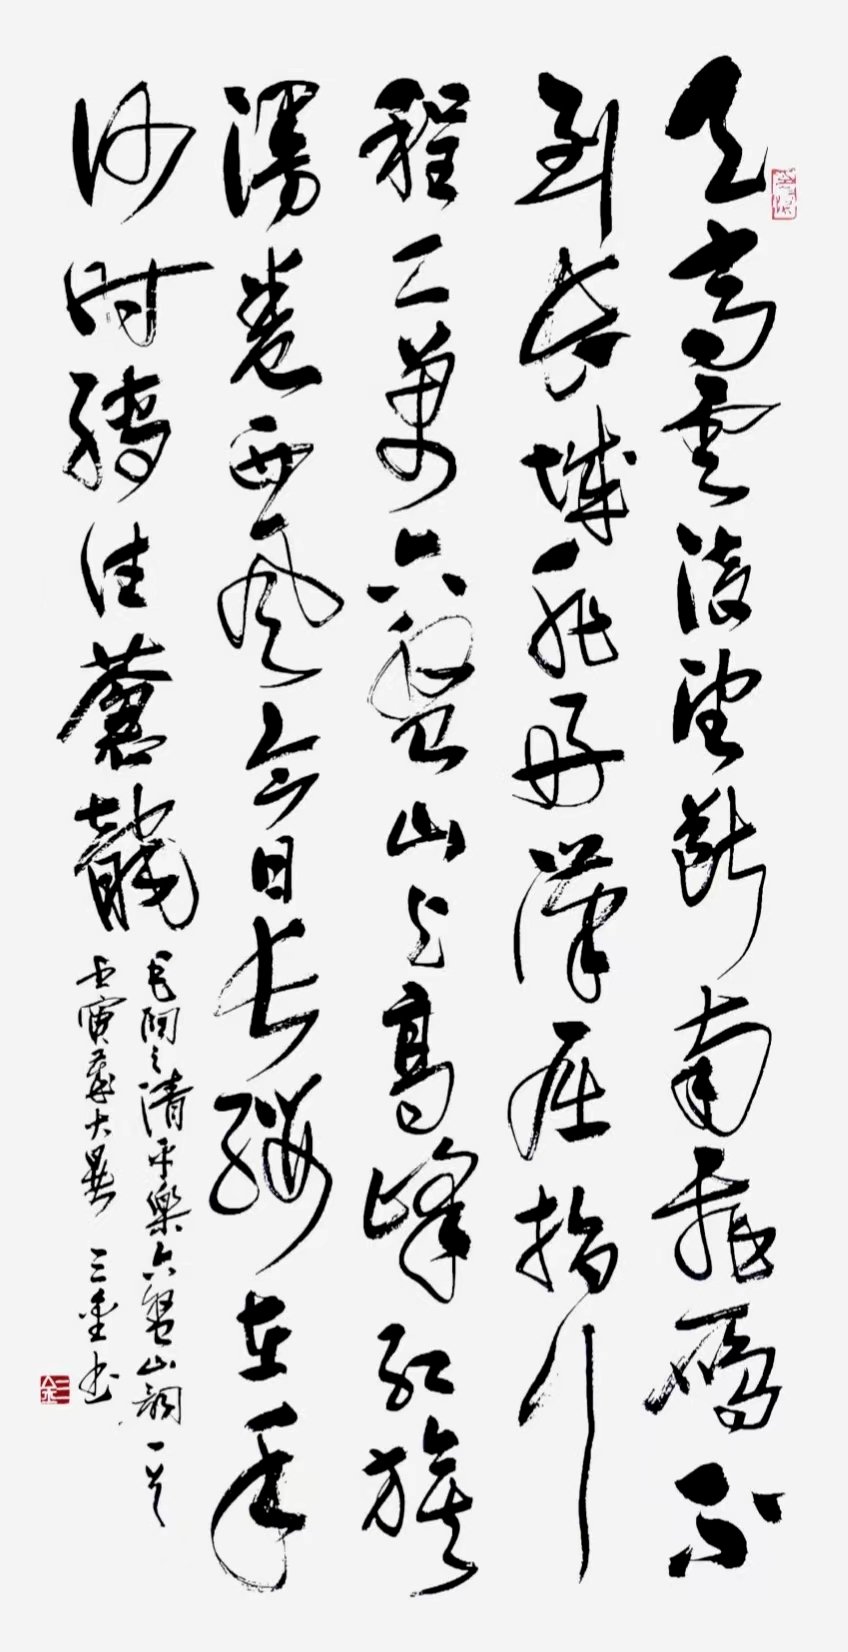 天高雲淡望斷南飛雁不
到長城非好漢屈指行
程二萬六盤山上高峰紅旗
漫卷西風今日長纓在手
何時縛住蒼龍
毛潤之清平樂六盤山詞一首
壬寅歲大暑 三金书
三金